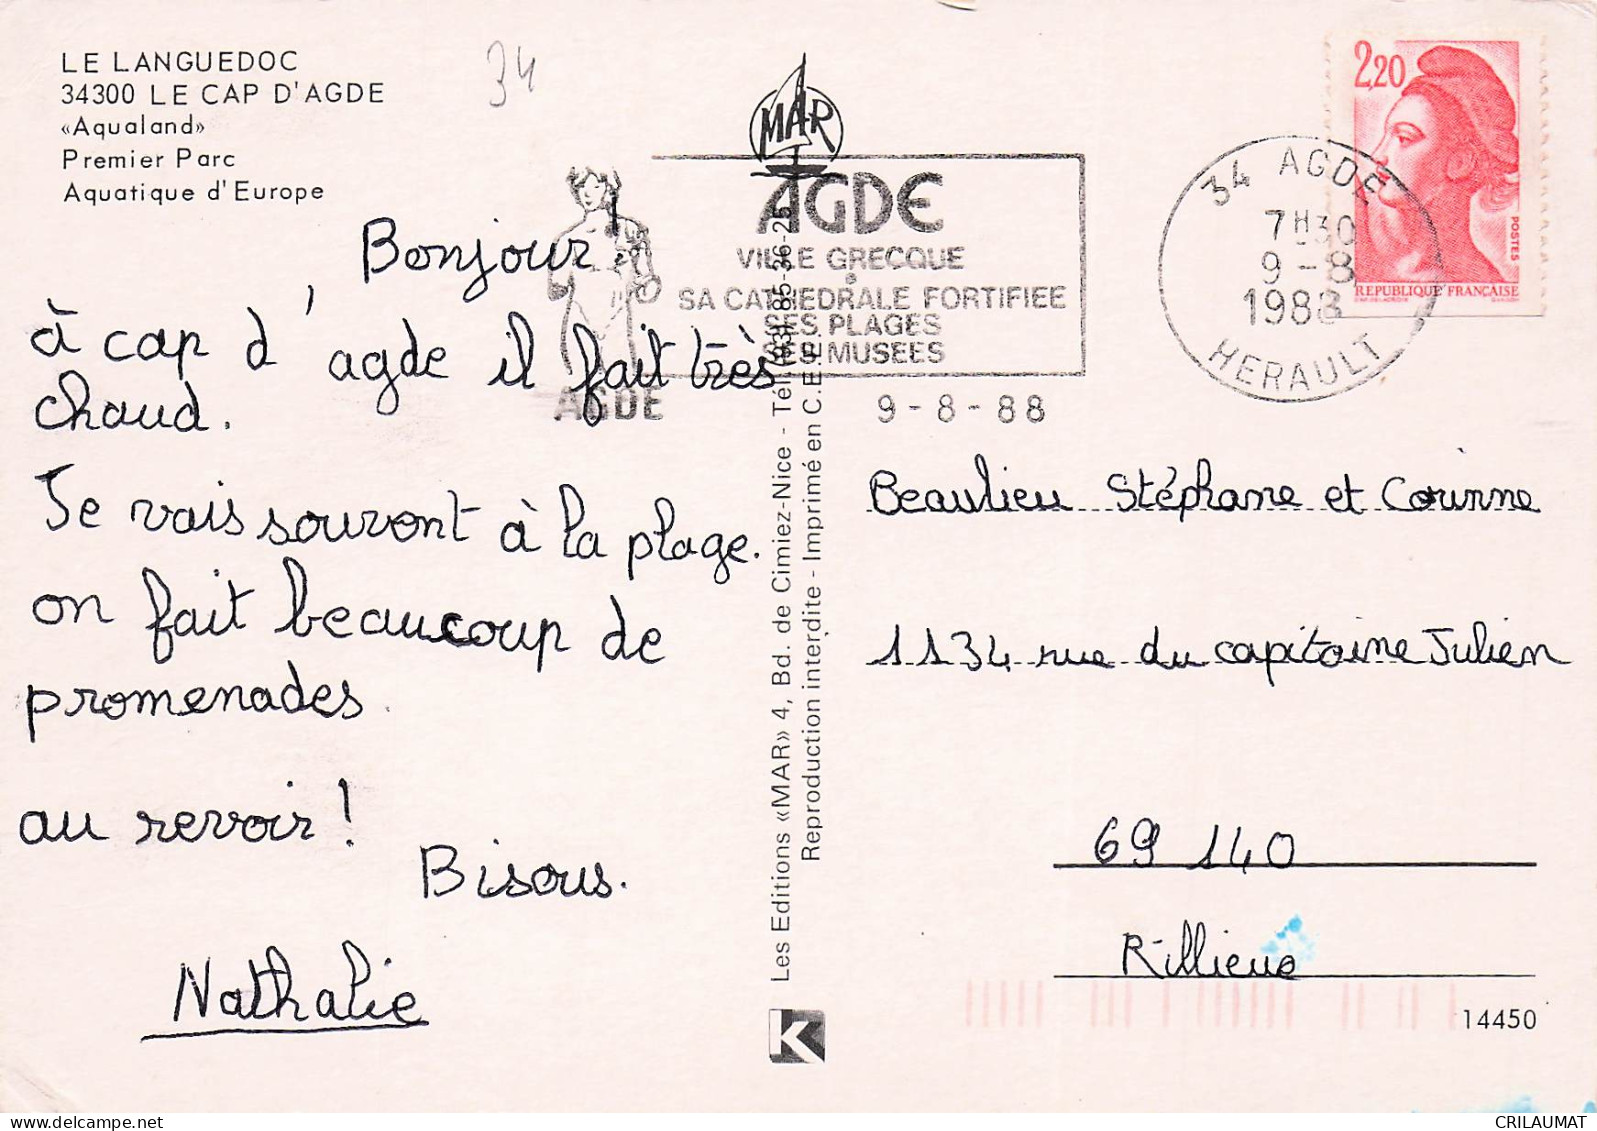 LE LANGUEDOC
34300 LE CAP D'AGDE
«Aqualand»
Premier Parc
Aquatique d'Europe
34
Bonjour!
à cap d'agde il fait très
chaud.
Je vais souvent à la plage.
on fait beaucoup de
promenades.
au revoir!
Bisous.
Nathalie
MAR
AGDE
VILLE GRECQUE
SA CATHEDRALE FORTIFIEE
SES PLAGES
SES MUSEES
AGDE
9-8-88
34 AGDE
7H30
9-8
1988
HERAULT
2,20
POSTES
REPUBLIQUE FRANCAISE
Les Editions «MAR» 4, Bd. de Cimiez-Nice - Tél. (93) 85-36-25
Reproduction interdite - Imprimé en C.E.E.
Beaulieu Stéphane et Corinne
1134 rue du capitaine Julien
69 140
Rillieue
K
14450
CRILAUMAT